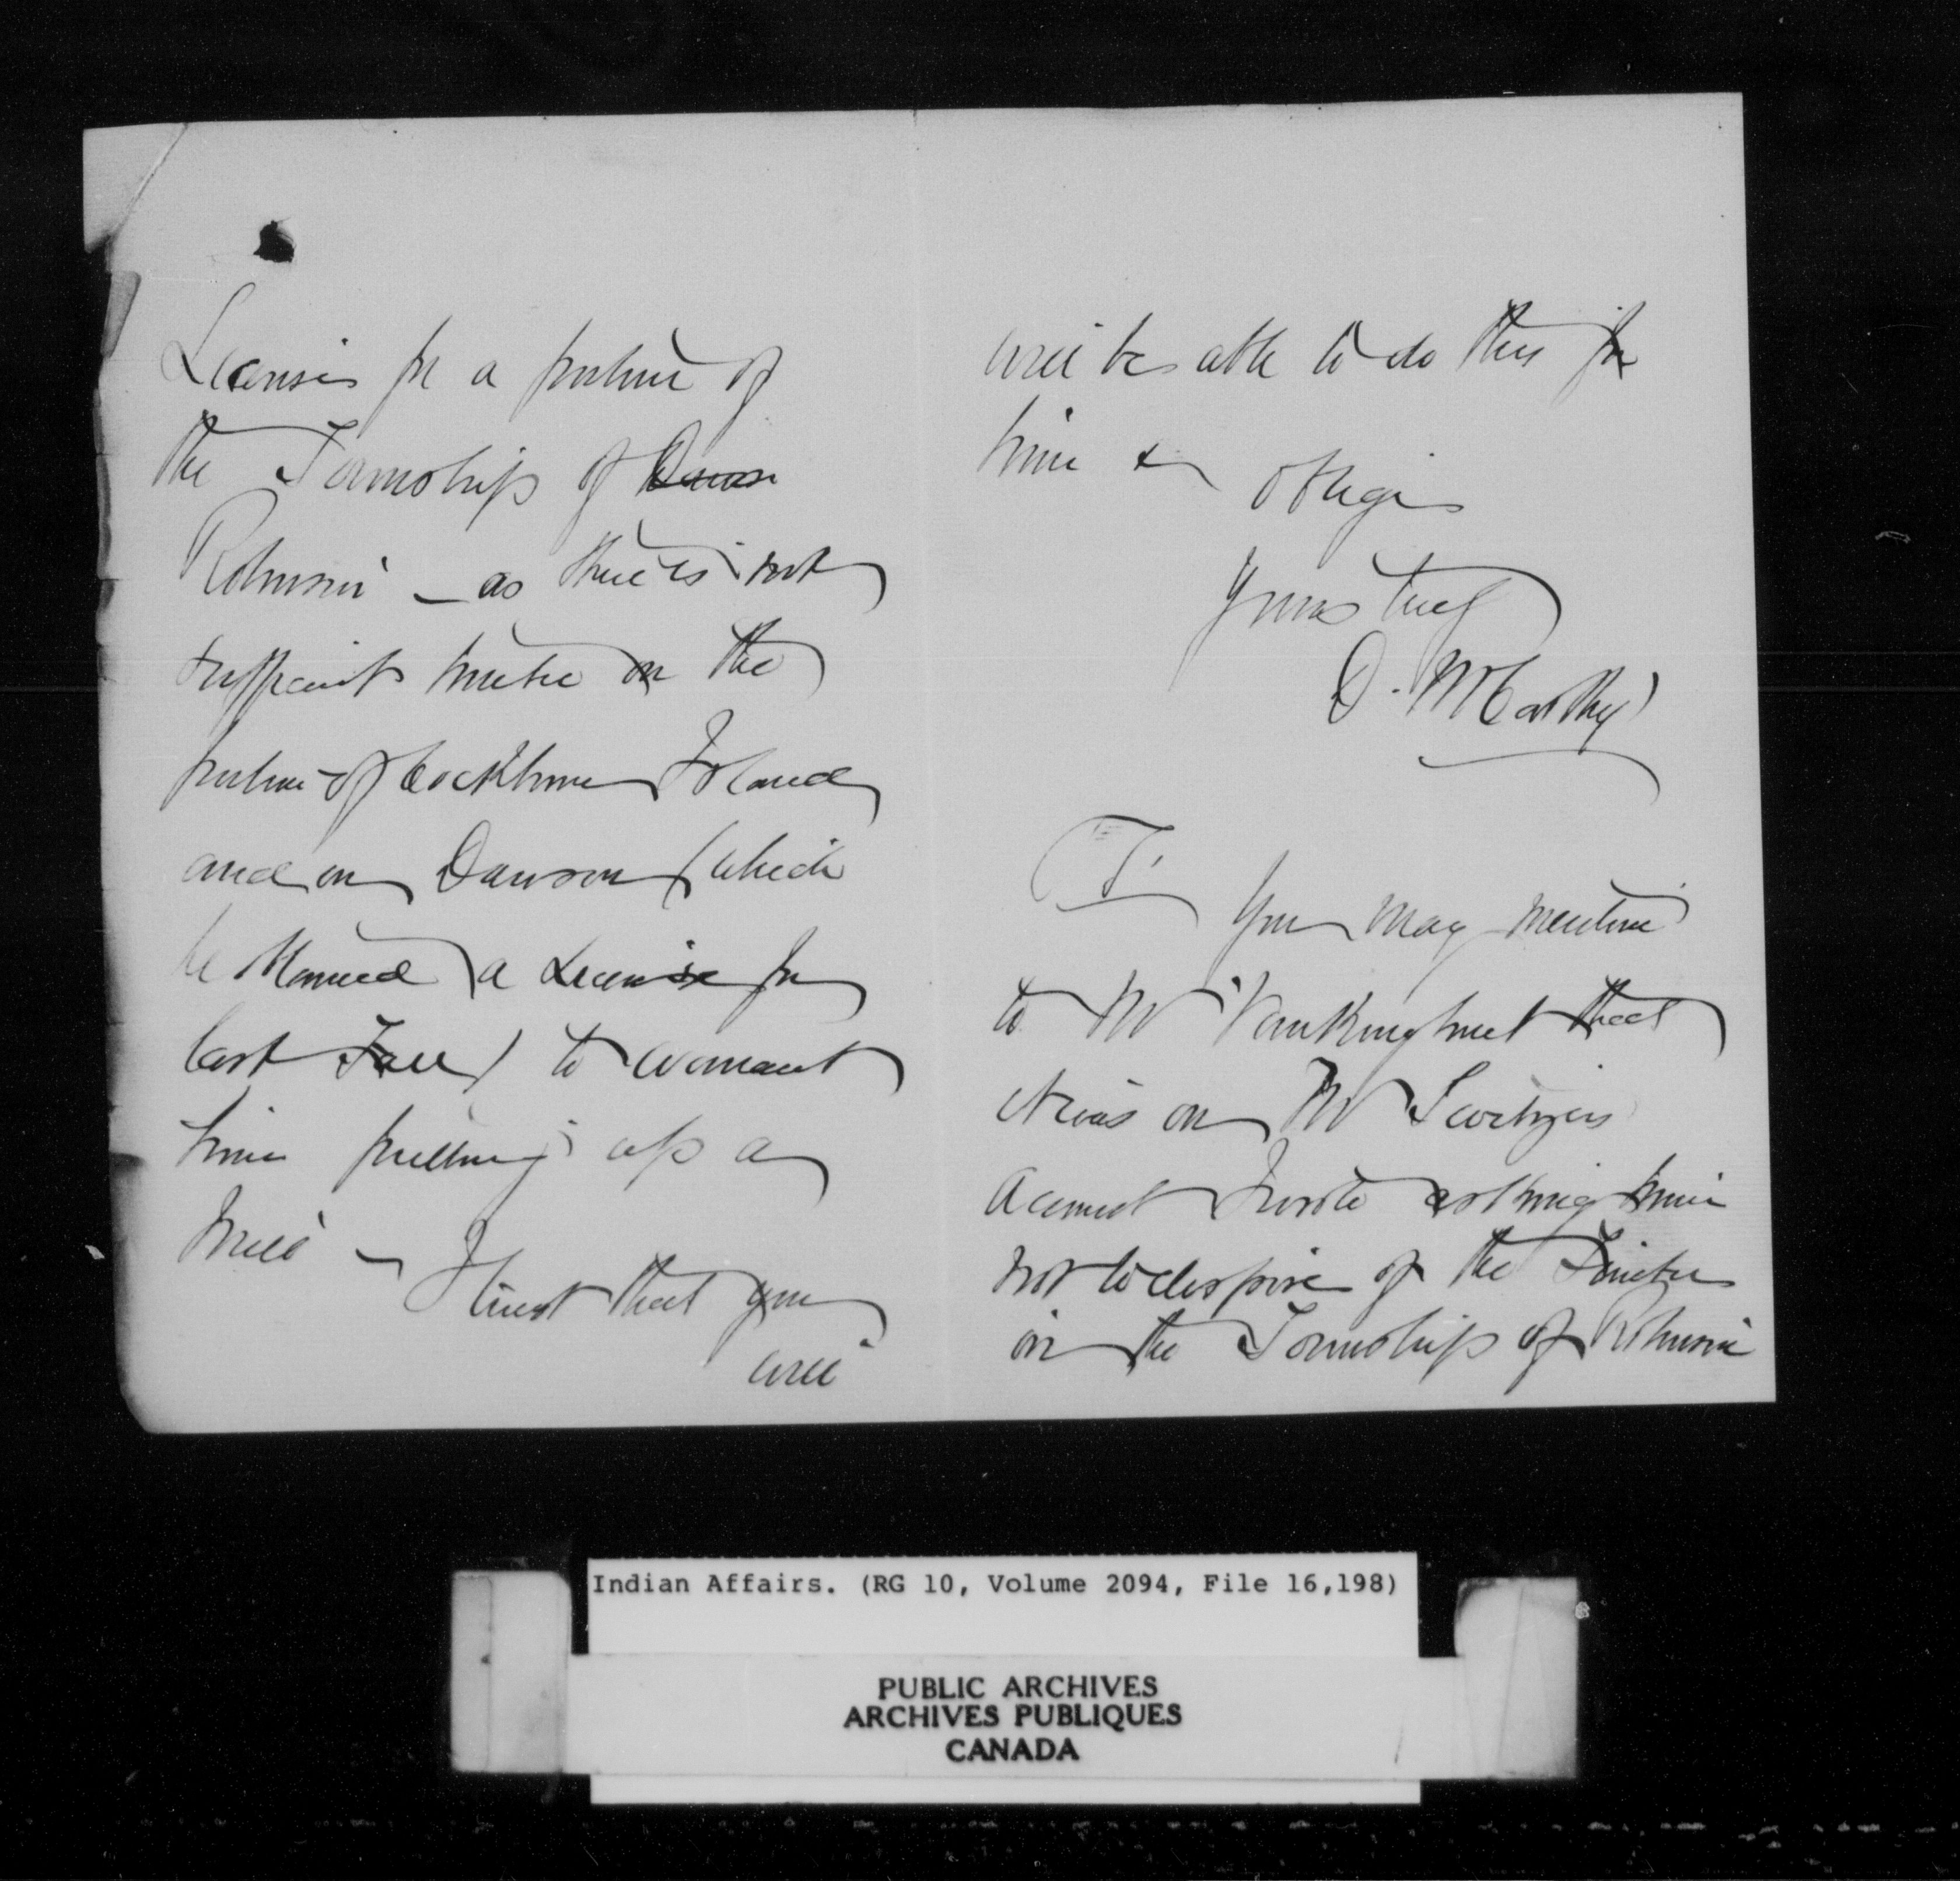 License for a portion of
the Township of Dawson
Robinson – as there is not
sufficient timber on the
portion of Cockburn Island
and on Dawson (which
he obtained a License for
last Fall) to warrant
him putting up a
mill – I trust that you
will
will be able to do this for
him & oblige
Yours truly
D. McCarthy
You may mention
to Mr Vankoughnet that
it was on Mr
account I wrote asking him
not to dispose of the Timber
in the Township of Robinson
Indian Affairs. (RG 10, Volume 2094, File 16,198)
PUBLIC ARCHIVES
ARCHIVES PUBLIQUES
CANADA